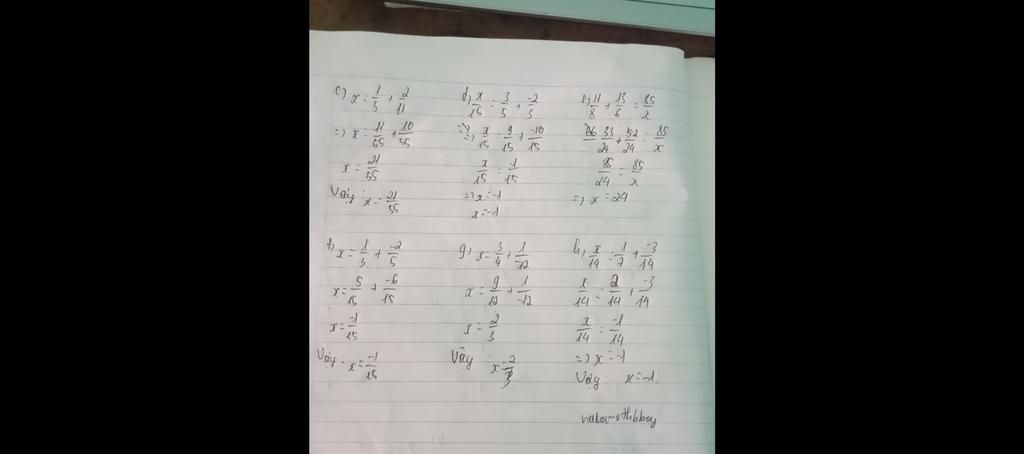 c) x = 1/5 + 2/11
=> x = 11/55 + 10/55
x = 21/55
Vậy : x = 21/55
d) x/15 = 3/5 + -2/3
=> x/15 = 9/15 + -10/15
x/15 = -1/15
=> x = -1
x = -1
e) 11/8 + 13/6 = 85/x
33/24 + 52/24 = 85/x
85/24 = 85/x
=> x = 24
f) x = 1/3 + -2/5
x = 5/15 + -6/15
x = -1/15
Vậy : x = -1/15
g) x = 3/4 + 1/-12
x = 9/12 + 1/-12
x = 2/3
Vậy : x = 2/3
h) x/14 = 1/7 + -3/14
x/14 = 2/14 + -3/14
x/14 = -1/14
=> x = -1
Vậy : x = -1.